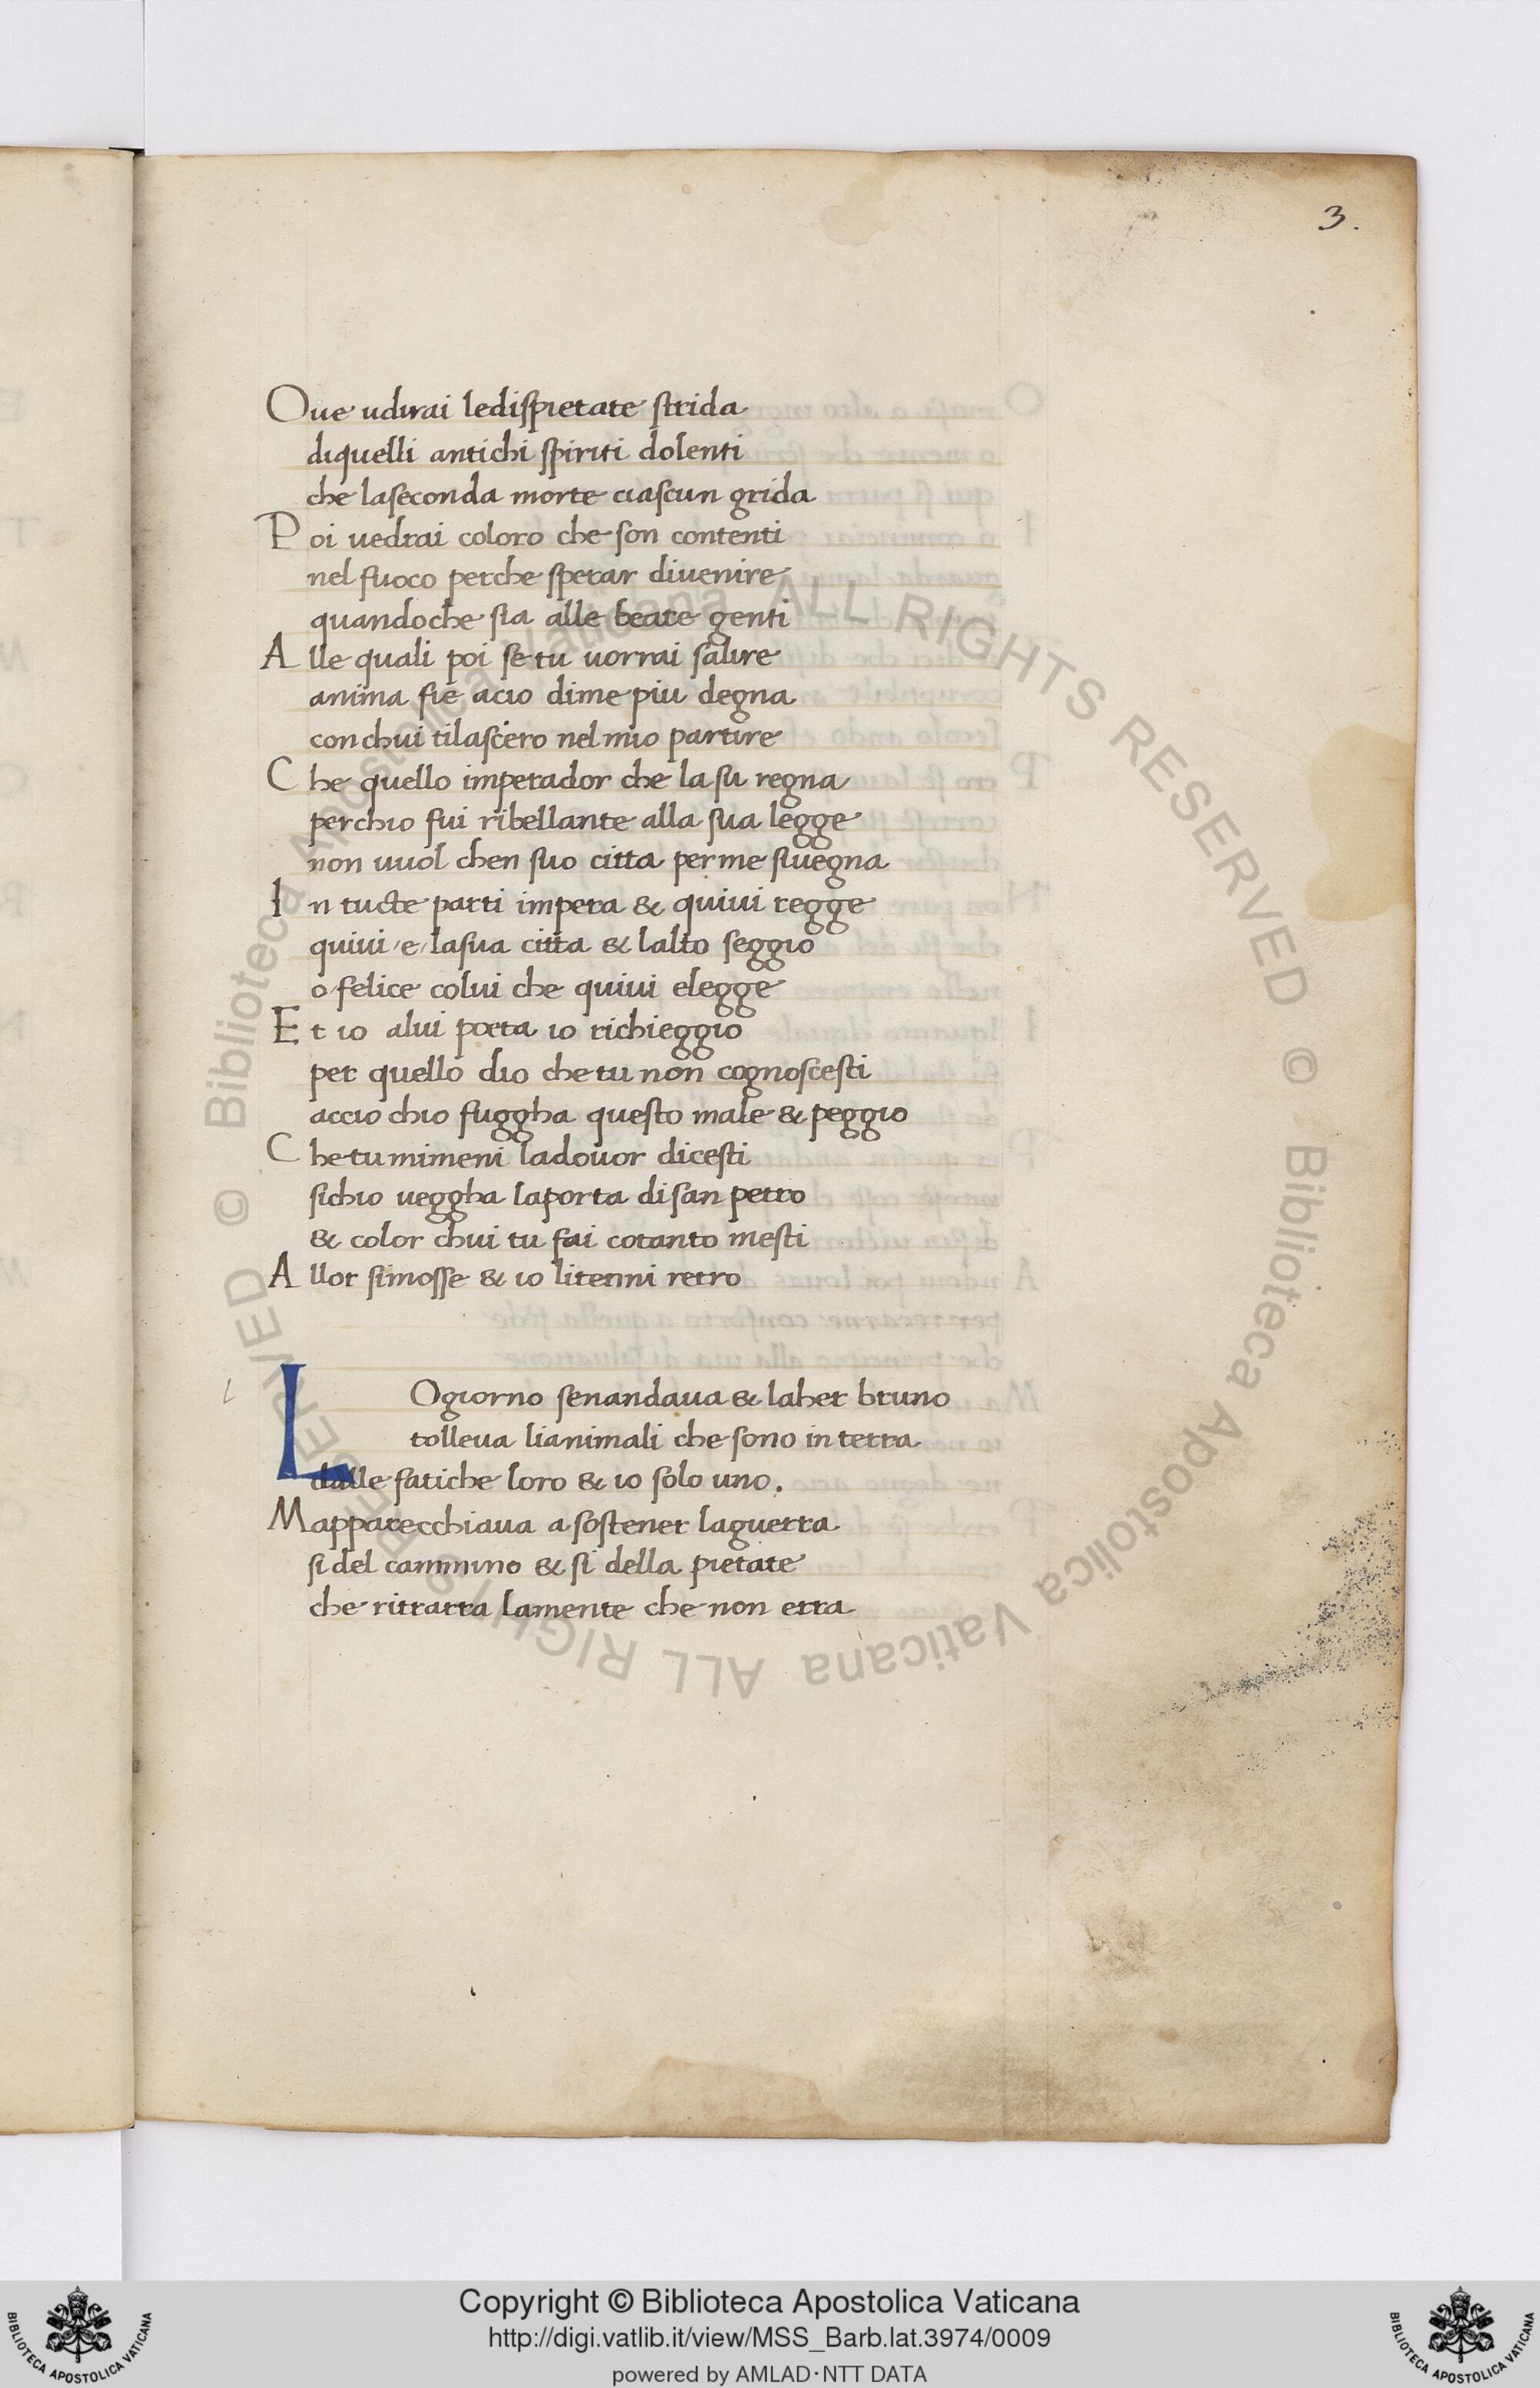 3.
Oue udirai ledispietate strida
diquelli antichi spiriti dolenti
che laseconda morte ciascun grida
Poi uedrai coloro che son contenti
nel fuoco perche sperar diuenire
quandoche sia alle beate genti
Alle quali poi se tu uorrai salire
anima fie acio dime piu degna
conchui tilascero nelmio partire
Che quello imperador che lasu regna
perchio fui ribellante alla sua legge
non uuol chen suo citta perme siuegna
In tucte parti impera & quiui regge
quiui /e/ lasua citta & lalto seggio
o felice colui che quiui elegge
Et io alui poeta io richieggio
per quello dio che tu non cognoscesti
accio chio fuggha questo male & peggio
Che tu mimeni ladouor dicesti
sichio ueggha laporta di san petro
& color chui tu fai cotanto mesti
Allor simosse & io litenni retro
l
LOgiorno senandaua & laher bruno
tolleua lianimali che sono in terra
dalle fatiche loro & io solo uno.
Mapparecchiaua a sostener laguerra
si del cammino & si della pietate
che ritrarra lamente che non erra
© Biblioteca Apostolica Vaticana ALL RIGHTS RESERVED © Biblioteca Apostolica Vaticana ALL RIGHTS RESERVED
Copyright © Biblioteca Apostolica Vaticana
http://digi.vatlib.it/view/MSS_Barb.lat.3974/0009
powered by AMLAD·NTT DATA
BIBLIOTECA APOSTOLICA VATICANA
BIBLIOTECA APOSTOLICA VATICANA